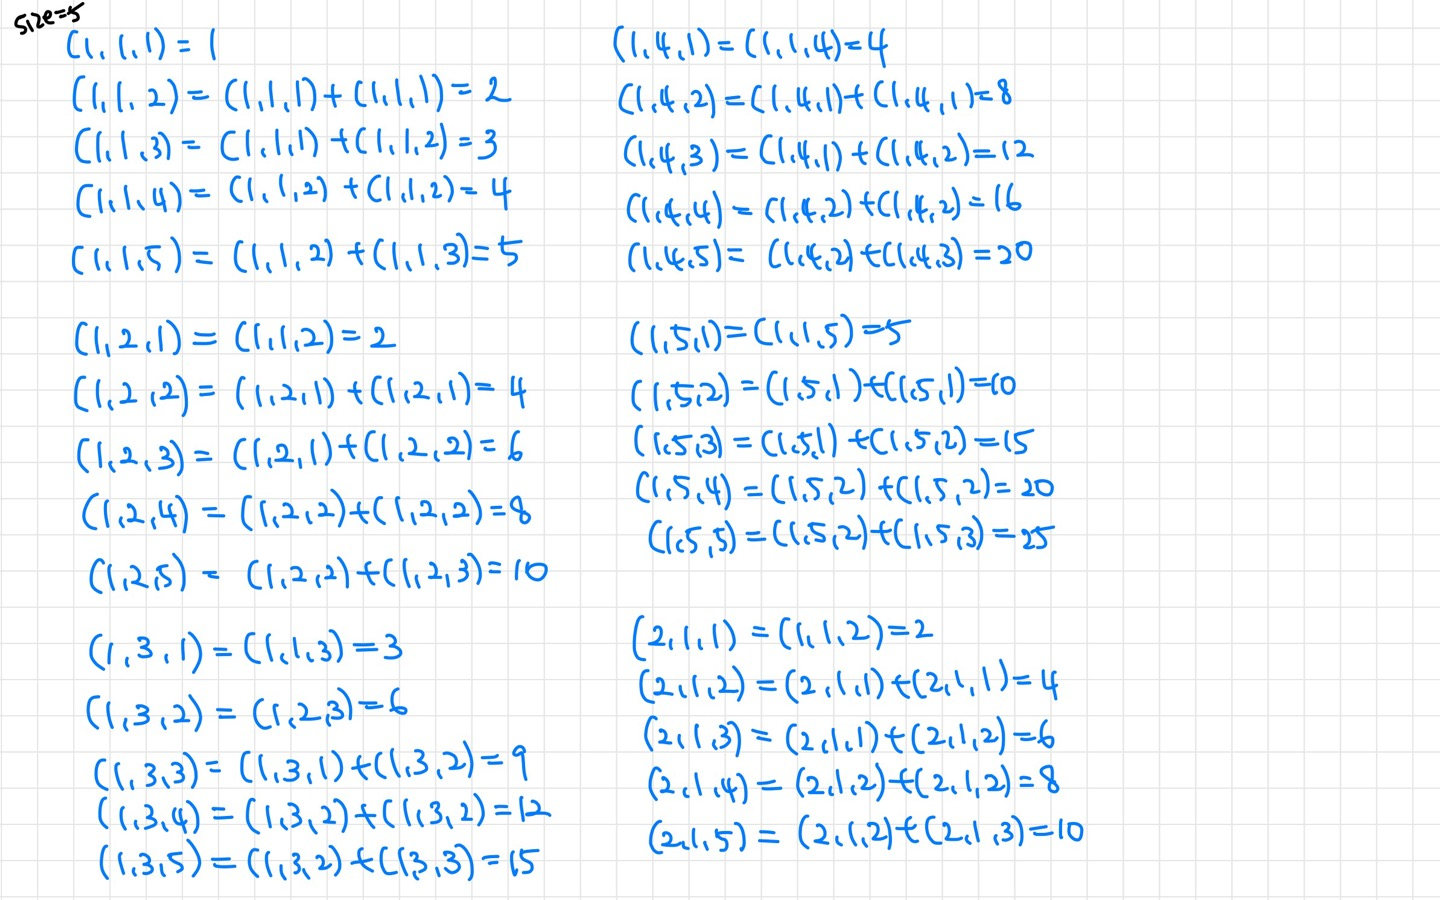 size=5
(1,1,1) = 1
(1,1,2) = (1,1,1)+(1,1,1) = 2
(1,1,3) = (1,1,1)+(1,1,2) = 3
(1,1,4) = (1,1,2)+(1,1,2) = 4
(1,1,5) = (1,1,2)+(1,1,3) = 5
(1,2,1) = (1,1,2) = 2
(1,2,2) = (1,2,1)+(1,2,1) = 4
(1,2,3) = (1,2,1)+(1,2,2) = 6
(1,2,4) = (1,2,2)+(1,2,2) = 8
(1,2,5) = (1,2,2)+(1,2,3) = 10
(1,3,1) = (1,1,3) = 3
(1,3,2) = (1,2,3) = 6
(1,3,3) = (1,3,1)+(1,3,2) = 9
(1,3,4) = (1,3,2)+(1,3,2) = 12
(1,3,5) = (1,3,2)+(1,3,3) = 15
(1,4,1) = (1,1,4) = 4
(1,4,2) = (1,4,1)+(1,4,1) = 8
(1,4,3) = (1,4,1)+(1,4,2) = 12
(1,4,4) = (1,4,2)+(1,4,2) = 16
(1,4,5) = (1,4,2)+(1,4,3) = 20
(1,5,1) = (1,1,5) = 5
(1,5,2) = (1,5,1)+(1,5,1) = 10
(1,5,3) = (1,5,1)+(1,5,2) = 15
(1,5,4) = (1,5,2)+(1,5,2) = 20
(1,5,5) = (1,5,2)+(1,5,3) = 25
(2,1,1) = (1,1,2) = 2
(2,1,2) = (2,1,1)+(2,1,1) = 4
(2,1,3) = (2,1,1)+(2,1,2) = 6
(2,1,4) = (2,1,2)+(2,1,2) = 8
(2,1,5) = (2,1,2)+(2,1,3) = 10